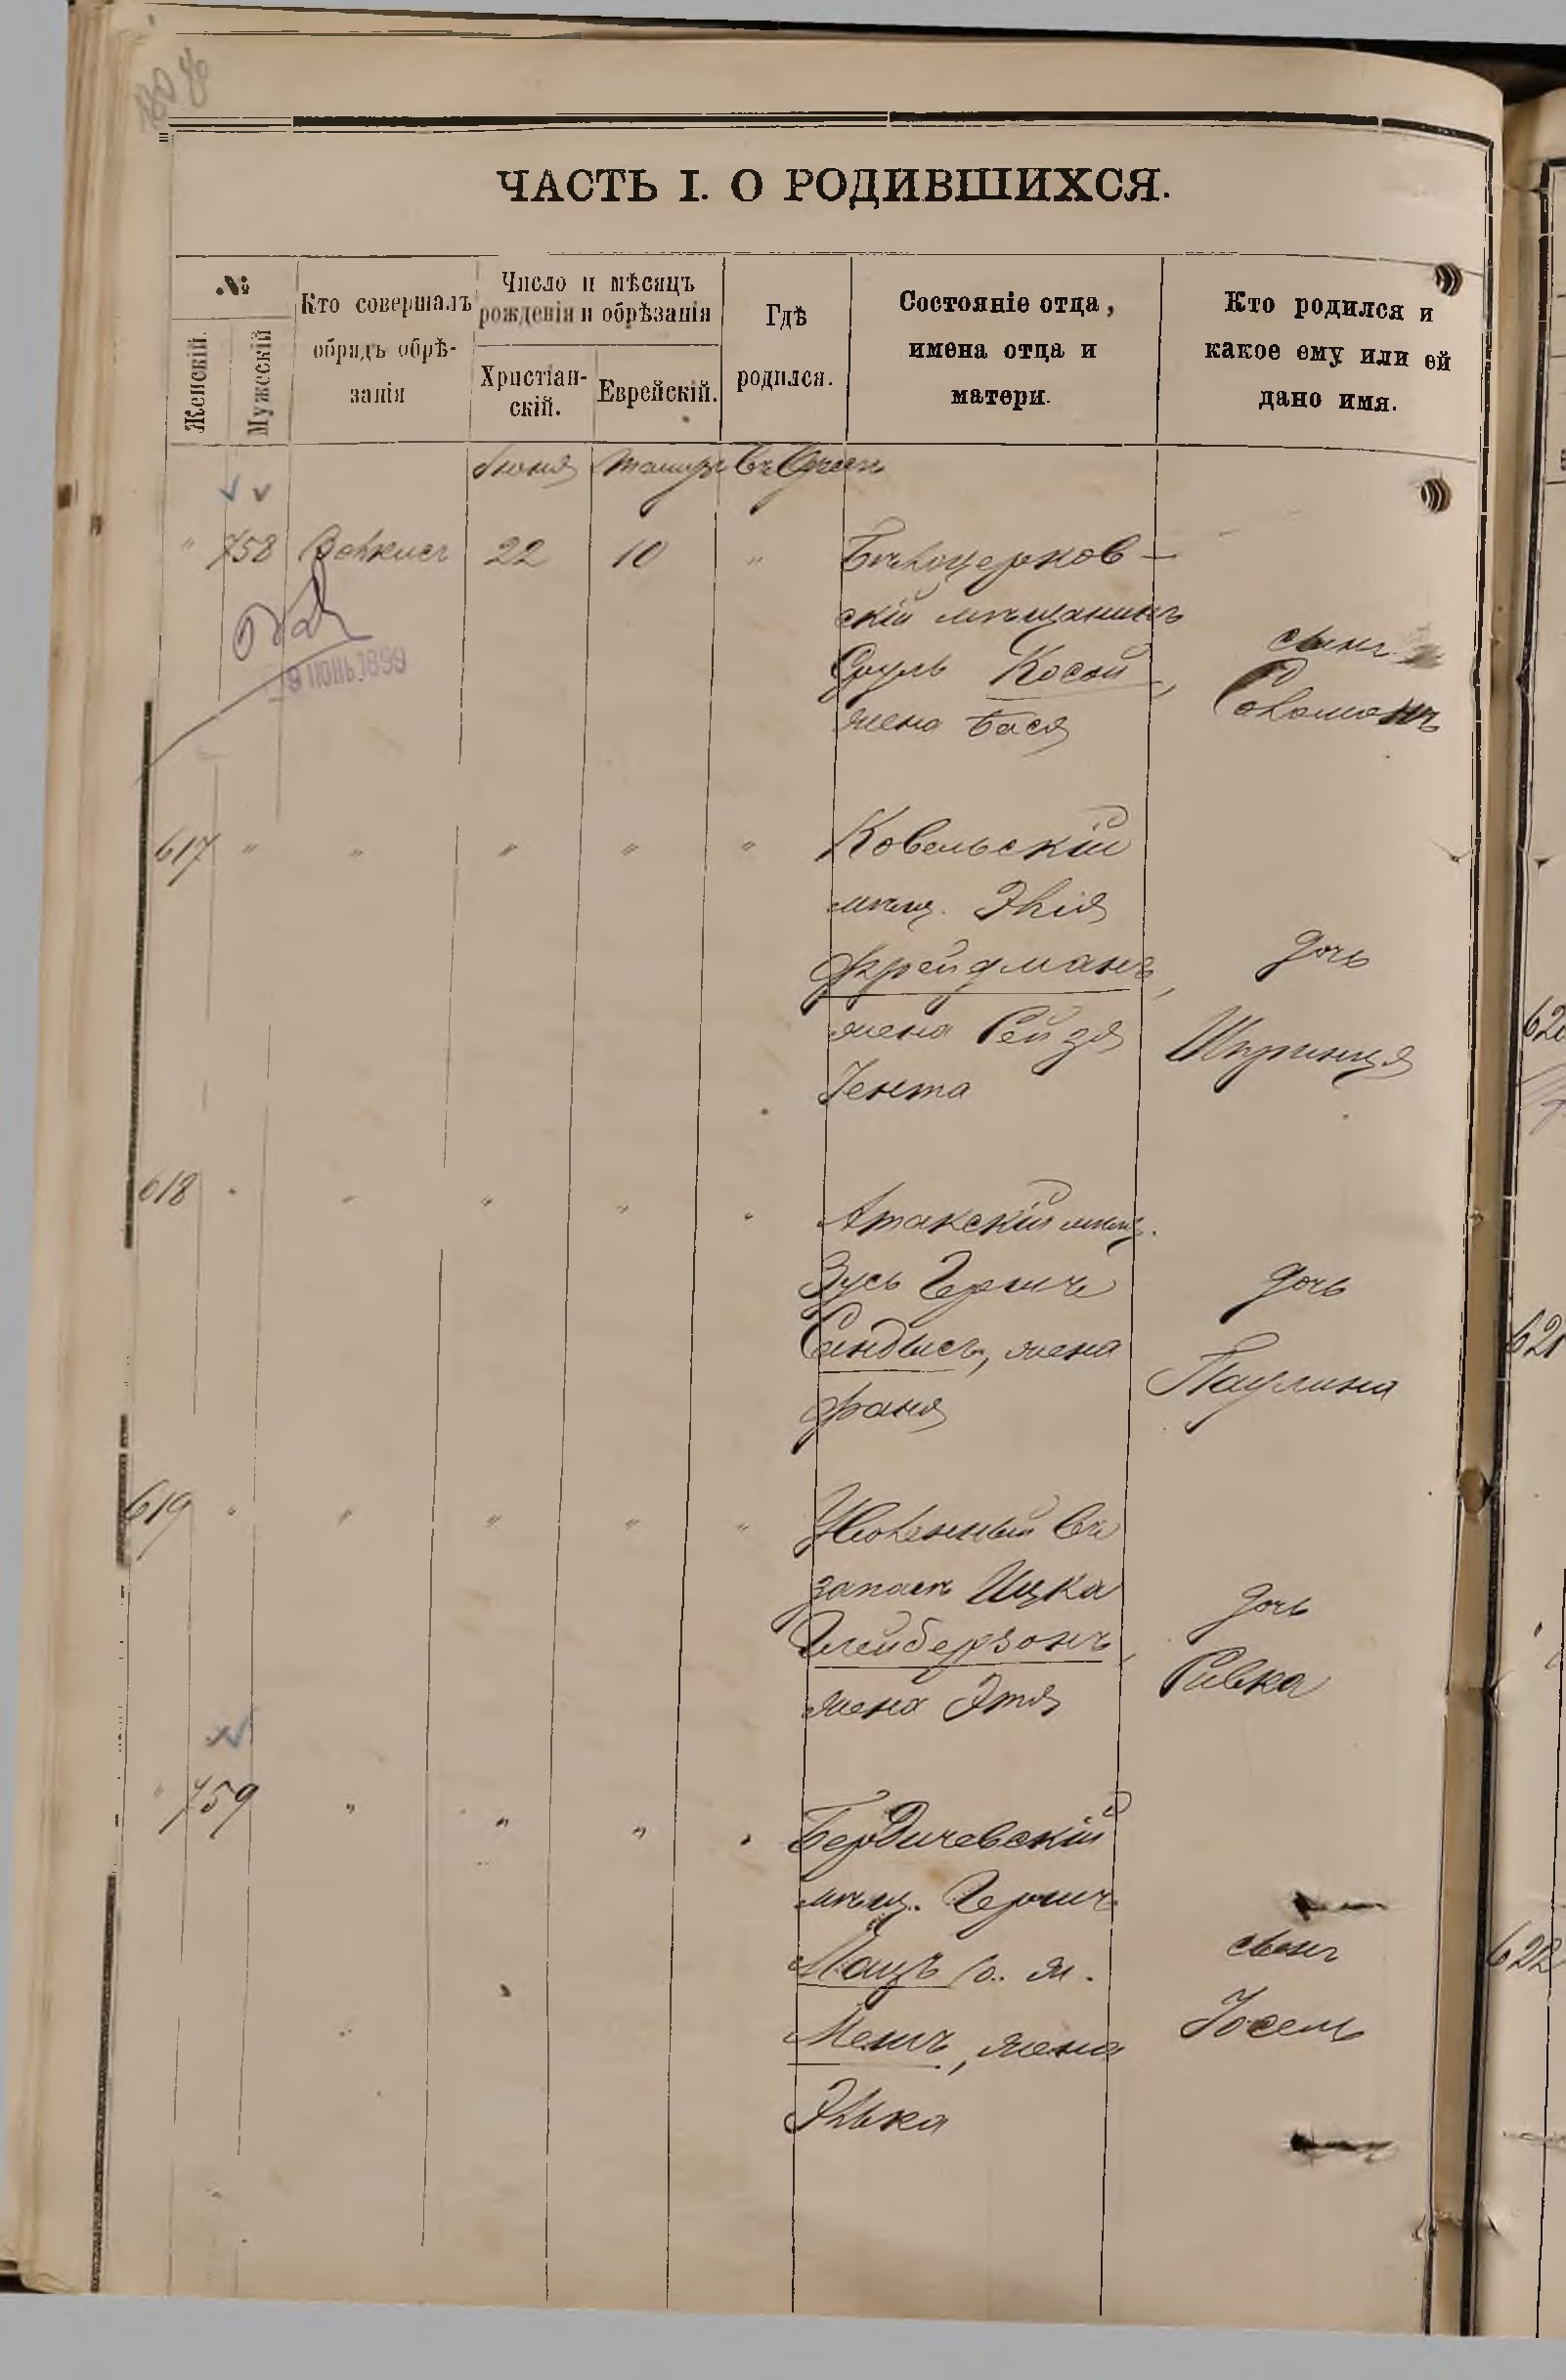 ЧАСТЬ I. О РОДИВШИХСЯ.
№
Женскій.
Мужескій
Кто совершалъ
обрядъ обрѣ-
занія
Число и мѣсяцъ
рожденія и обрѣзанія
Христіан-
скій.
Еврейскій.
Гдѣ
родился.
Состояніе отца,
имена отца и
матери.
Кто родился и
какое ему или ей
дано имя.
Іюня
въ Одессѣ
" 758 22 10 " Бѣлоцерков-
скій мѣщанинъ
Сруль Косой,
жена Бася
сынъ
Соломонъ
9 ІЮНЬ 1899
617 " " " " " Ковельскій
мѣщ. Элія
Фрейдманъ,
жена Рейзя
Іента
дочь
Шпринця
618 " " " " " Атакскій мѣщ.
Зусь Гершъ
Сандысъ, жена
Фаня
дочь
Паулина
619 " " " " " Уволенный въ
запасъ Ицка
Глейберзонъ,
жена Этя
дочь
Ривка
" 759 " " " " Бердичевскій
мѣщ. Гершъ
Мацъ о. ж.
Мешъ, жена
Элька
сынъ
Іосель